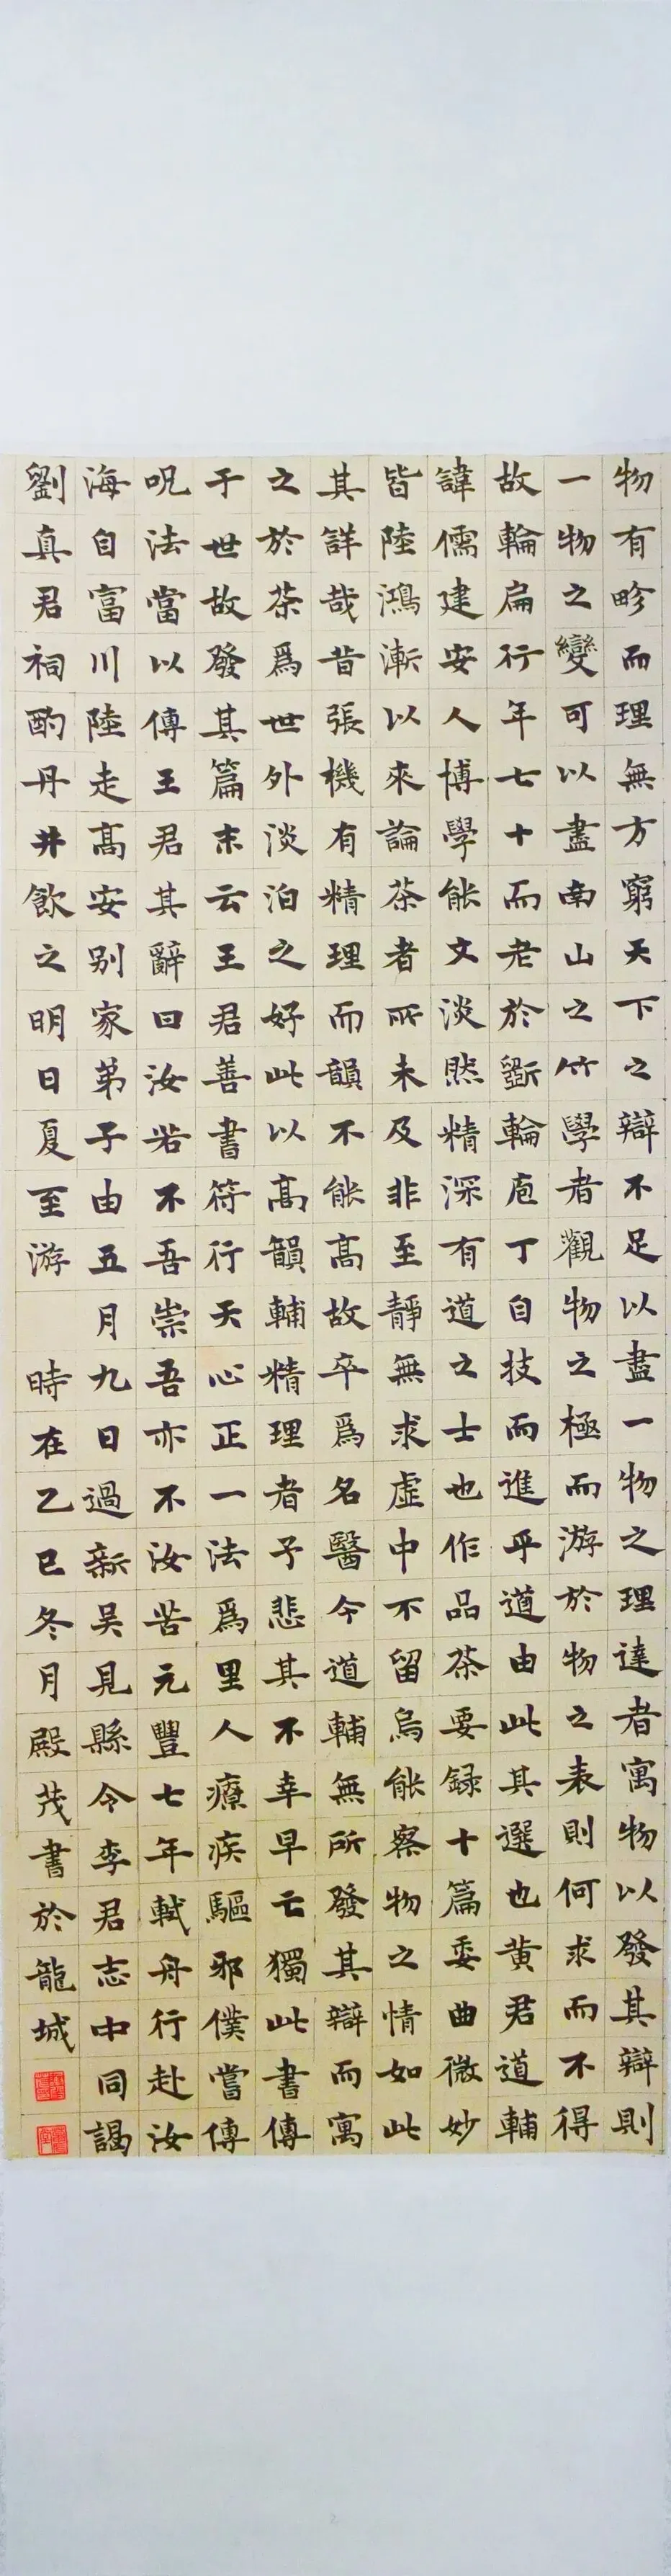 物有畛而理無方窮天下之辯不足以盡一物之理達者寓物以發其辯則
一物之變可以盡南山之竹學者觀物之極而游於物之表則何求而不得
故輪扁行年七十而老於斲輪庖丁自技而進乎道由此其選也黄君道輔
諱儒建安人博學能文淡然精深有道之士也作品茶要録十篇委曲微妙
皆陸鴻漸以來論茶者所未及非至靜無求虛中不留烏能察物之情如此
其詳哉昔張機有精理而韻不能髙故卒爲名醫今道輔無所發其辯而寓
之於茶爲世外淡泊之好此以髙韻輔精理者予悲其不幸早亡獨此書傳
于世故發其篇末云王君善書符行天心正一法爲里人療疾驅邪僕嘗傳
呪法當以傳王君其辭曰汝若不吾崇吾亦不汝苦元豐七年軾舟行赴汝
海自富川陸走髙安别家弟子由五月九日過新吴見縣令李君志中同謁
劉真君祠酌丹井飲之明日夏至游 時在乙巳冬月殿茂書於龍城